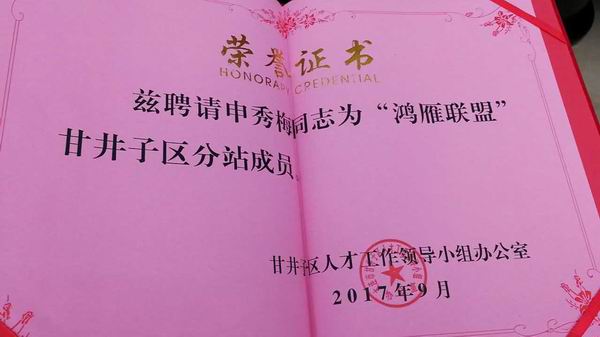 荣誉证书
HONORARY CREDENTIAL
兹聘请申秀梅同志为“鸿雁联盟”
甘井子区分站成员。
甘井子区人才工作领导小组办公室
2017年9月